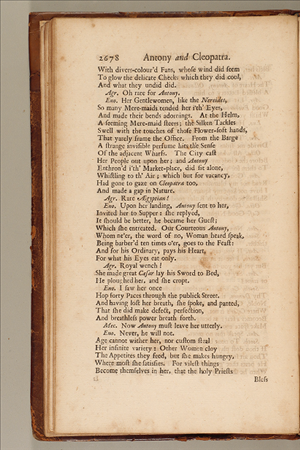 2678 Antony and Cleopatra.
With divers-colour'd Fans, whose wind did seem
To glow the delicate Cheeks which they did cool,
And what they undid did.
Agr. Oh rare for Antony.
Eno. Her Gentlewomen, like the Nereides,
So many Mere-maids tended her i'th' Eyes,
And made their bends adornings. At the Helm,
A seeming Mere-maid steers; the Silken Tackles
Swell with the touches of those Flower-soft hands,
That yarely frame the Office. From the Barge
A strange invisible perfume hits the Sense
Of the adjacent Wharfs. The City cast
Her People out upon her; and Antony
Enthron'd i'th' Market-place, did sit alone,
Whistling to th' Air; which but for vacancy,
Had gone to gaze on Cleopatra too,
And made a gap in Nature.
Agr. Rare Ægyptian!
Eno. Upon her landing, Antony sent to her,
Invited her to Supper: she replyed,
It should be better, he became her Guest;
Which she entreated. Our Courteous Antony,
Whom ne'er, the word of no, Woman heard speak,
Being barber'd ten times o'er, goes to the Feast:
And for his Ordinary, pays his Heart,
For what his Eyes eat only.
Agr. Royal wench!
She made great Cæsar lay his Sword to Bed,
He plough'd her, and she cropt.
Eno. I saw her once
Hop forty Paces through the publick Street.
And having lost her breath, she spoke, and panted,
That she did make defect, perfection,
And breathless power breath forth.
Mec. Now Antony must leave her utterly.
Eno. Never, he will not.
Age cannot wither her, nor custom steal
Her infinite variety: Other Women cloy
The Appetites they feed, but she makes hungry,
Where most she satisfies. For vilest things
Become themselves in her, that the holy Priests
Bless